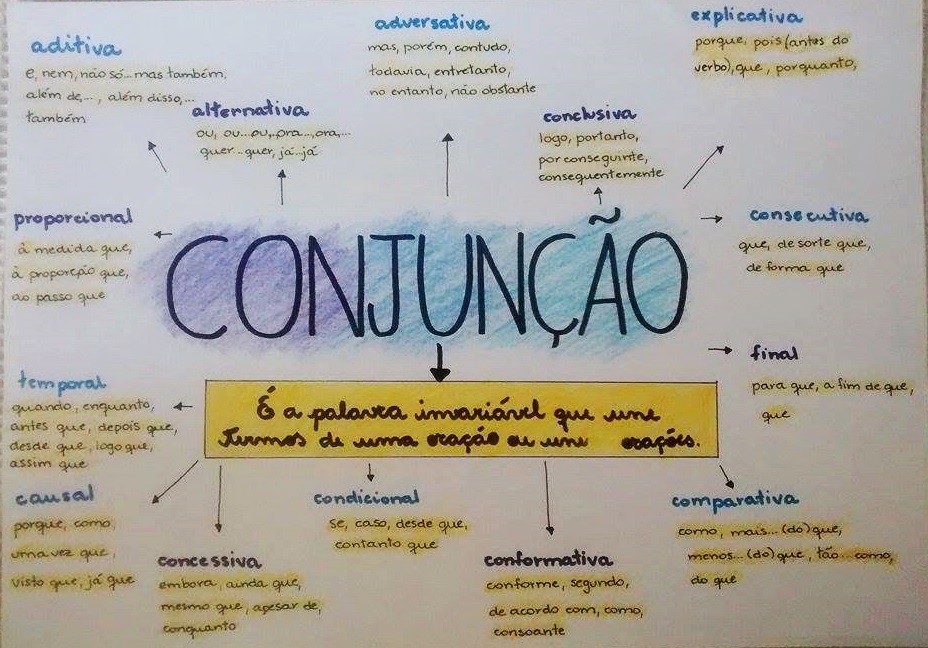 aditiva
e, nem, não só...mas também,
além de..., além disso,...
também
alternativa
ou, ou...ou, ora...,ora,...
quer...quer, já...já
adversativa
mas, porém, contudo,
todavia, entretanto,
no entanto, não obstante
conclusiva
logo, portanto,
por conseguinte,
consequentemente
explicativa
porque, pois (antes do
verbo), que, porquanto,
proporcional
à medida que,
à proporção que,
ao passo que
CONJUNÇÃO
consecutiva
que, de sorte que,
de forma que
final
para que, a fim de que,
que
É a palavra invariável que une
termos de uma oração ou une orações.
temporal
quando, enquanto,
antes que, depois que,
desde que, logo que,
assim que
causal
porque, como,
uma vez que,
visto que, já que
concessiva
embora, ainda que,
mesmo que, apesar de,
conquanto
condicional
se, caso, desde que,
contanto que
conformativa
conforme, segundo,
de acordo com, como,
consoante
comparativa
como, mais...(do) que,
menos...(do) que, tão...como,
do que